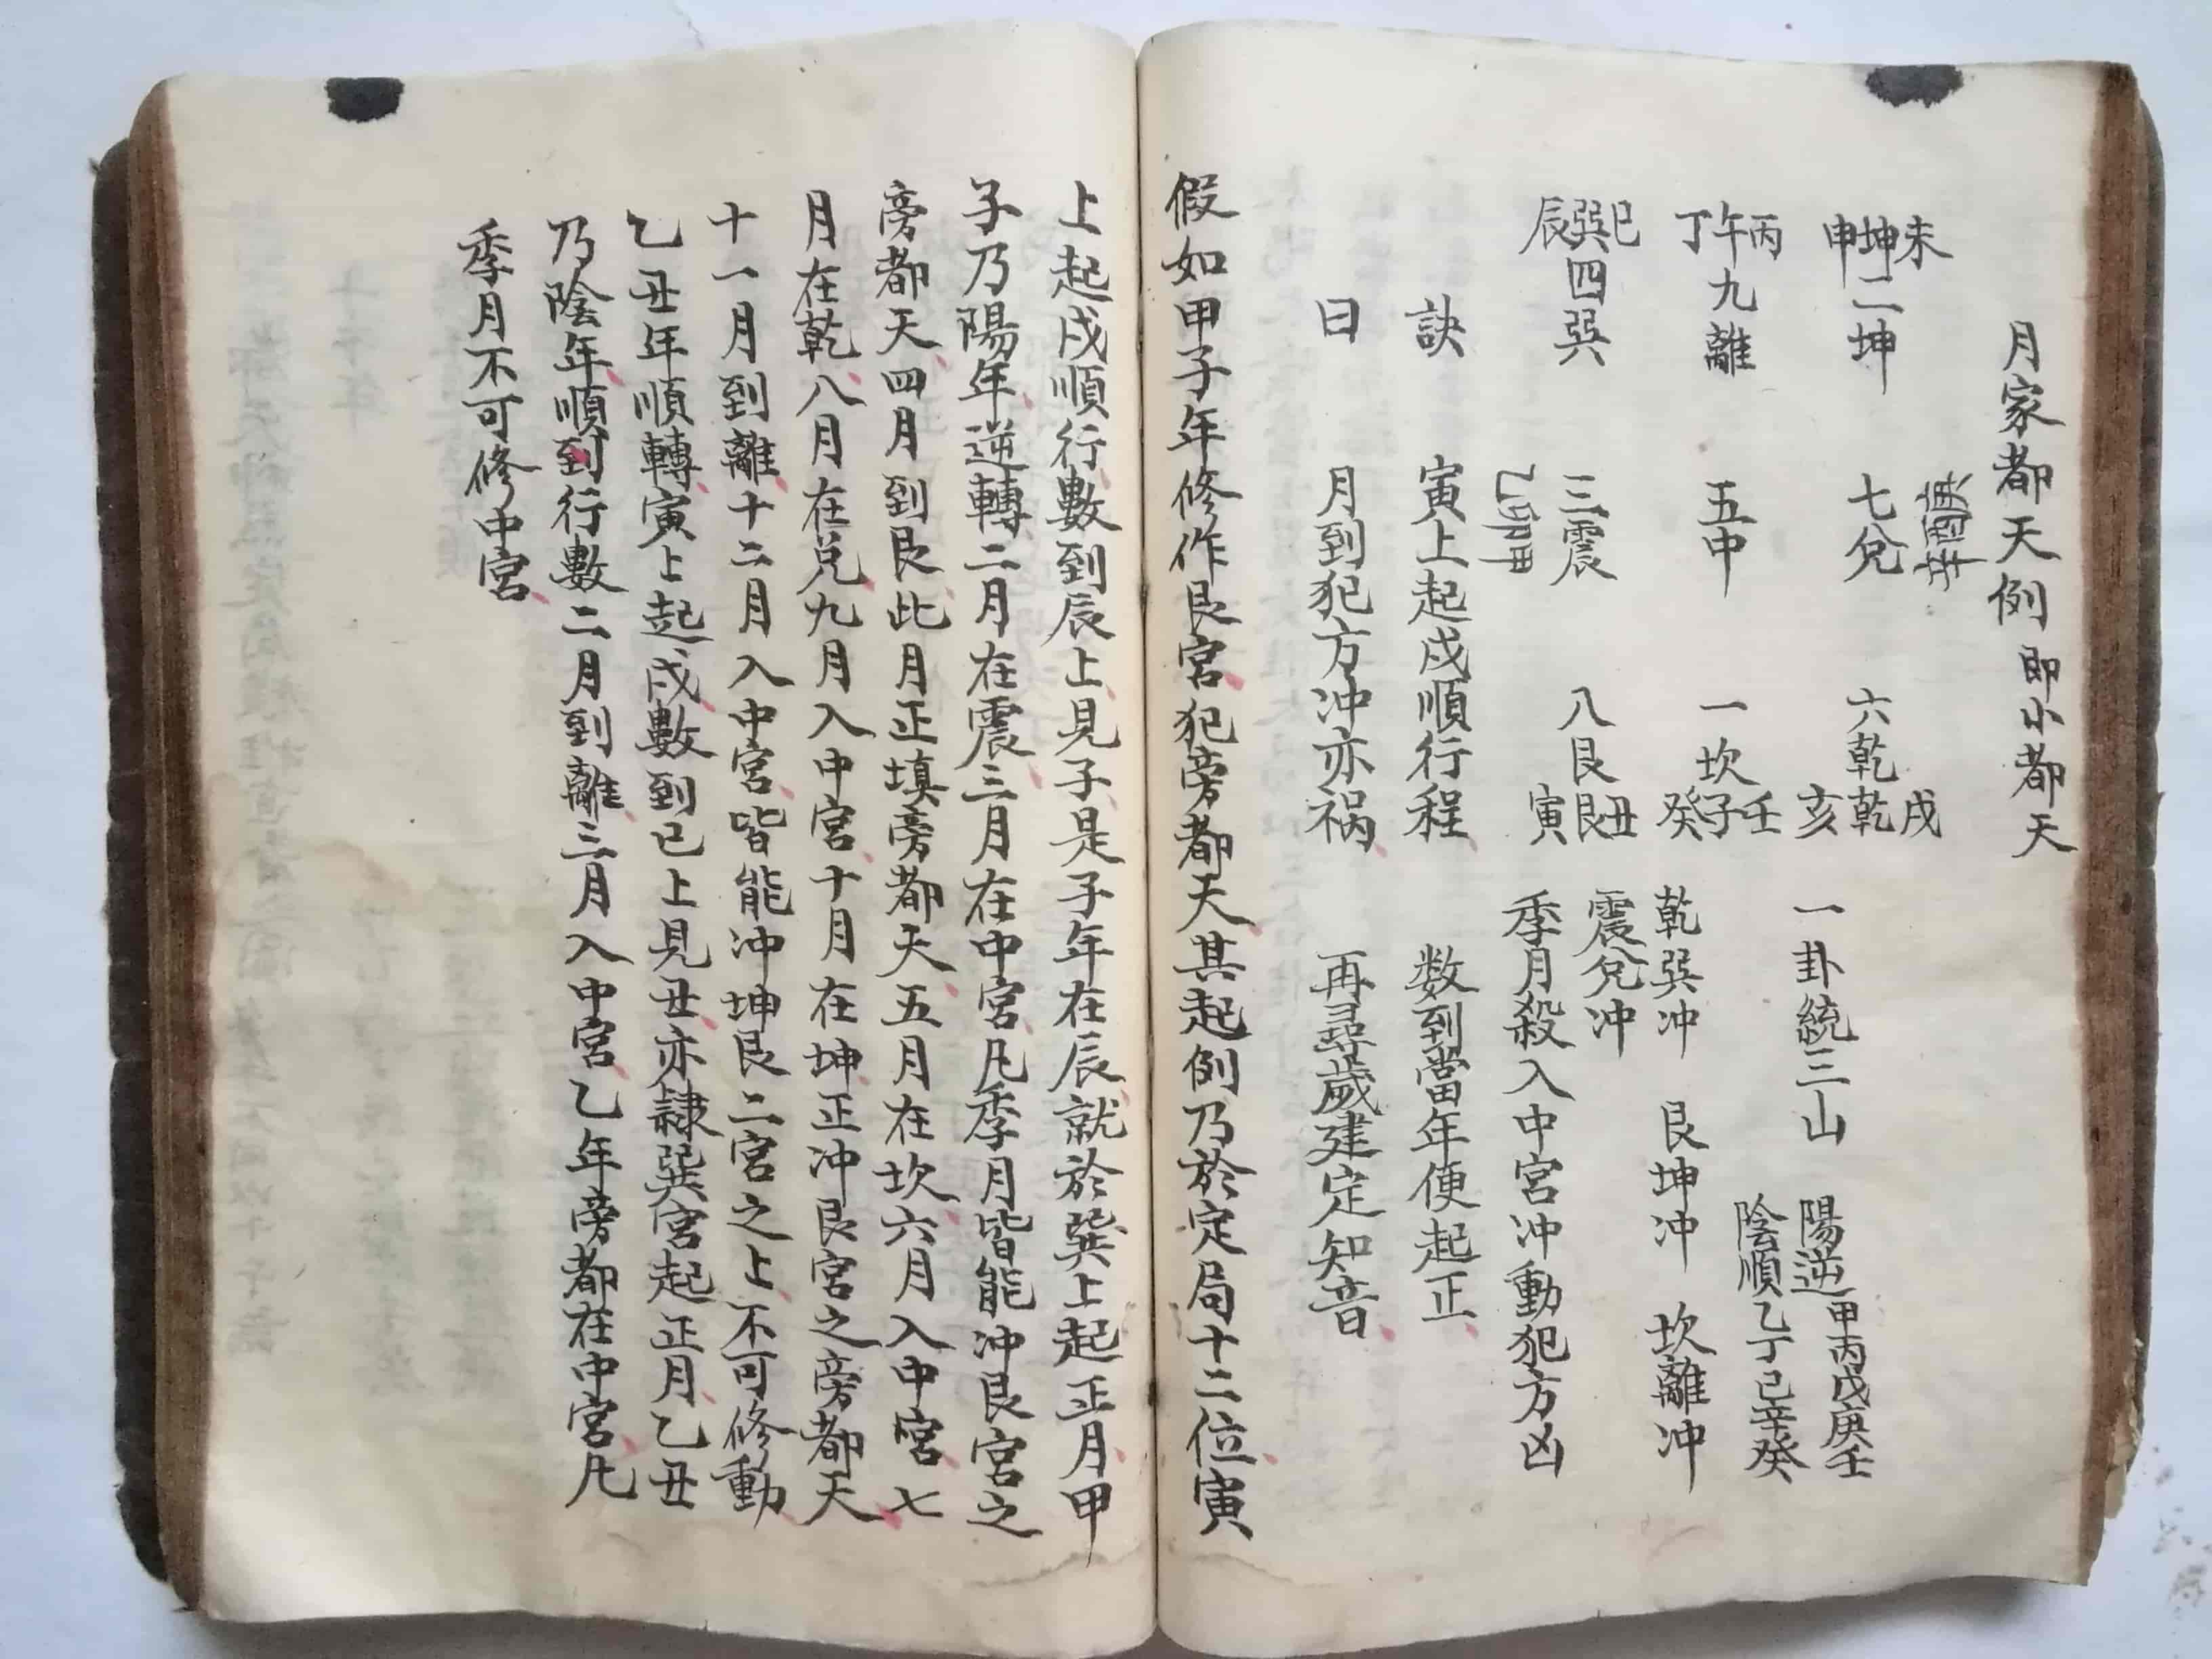 月家都天例 即小都天
未坤申 二坤 七兌 六乾 戌乾亥 一卦統三山 陽逆甲丙戊庚壬
陰順乙丁己辛癸
丙午丁 九離 五中 一坎 壬子癸 乾巽冲 艮坤冲 坎離冲
巳巽辰 四巽 三震 八艮 丑艮寅 震兌冲
季月殺入中宮冲動犯方凶
訣 寅上起戌順行程 数到當年便起正
曰 月到犯方冲亦祸 再尋歲建定知音
假如甲子年修作艮宮犯旁都天其起例乃於定局十二位寅
上起戌順行數到辰上見子是子年在辰就於巽上起正月甲
子乃陽年逆轉二月在震三月在中宮凡季月皆能冲艮宮之
旁都天四月到艮此月正填旁都天五月在坎六月入中宮七
月在乾八月在兌九月入中宮十月在坤正冲艮宮之旁都天
十一月到離十二月入中宮皆能冲坤艮二宮之上不可修動
乙丑年順轉寅上起戌數到巳上見丑亦隷巽宮起正月乙丑
乃陰年順到行數二月到離三月入中宮乙年旁都在中宮凡
季月不可修中宮